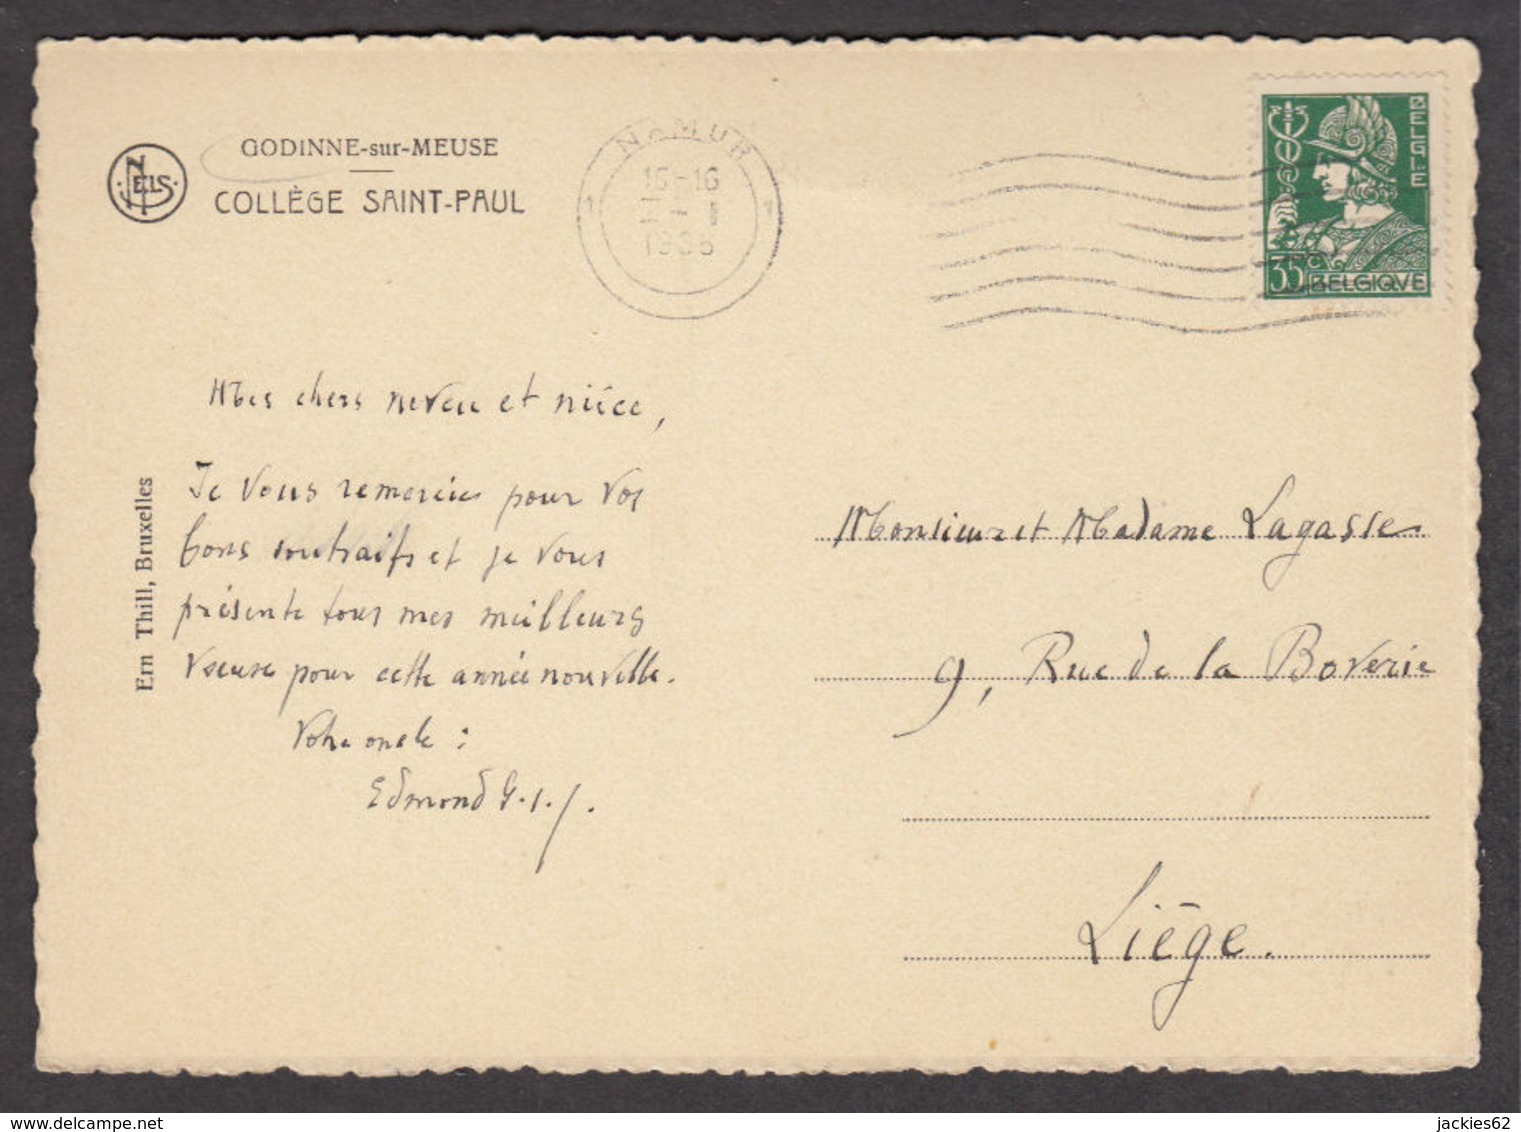 GODINNE-sur-MEUSE
COLLÈGE SAINT-PAUL
NELS
Ern Thill, Bruxelles
NAMUR
1 1
15-16
- 1
1936
BELGIE
35 C
BELGIQVE
Mes chers neveu et nièce,
Je vous remercie pour vos
bons souhaits et je vous
présente tous mes meilleurs
voeux pour cette année nouvelle.
Votre oncle :
Edmond
Monsieur et Madame Lagasse
9, Rue de la Boverie
Liège.
delcampe.net
jackies62